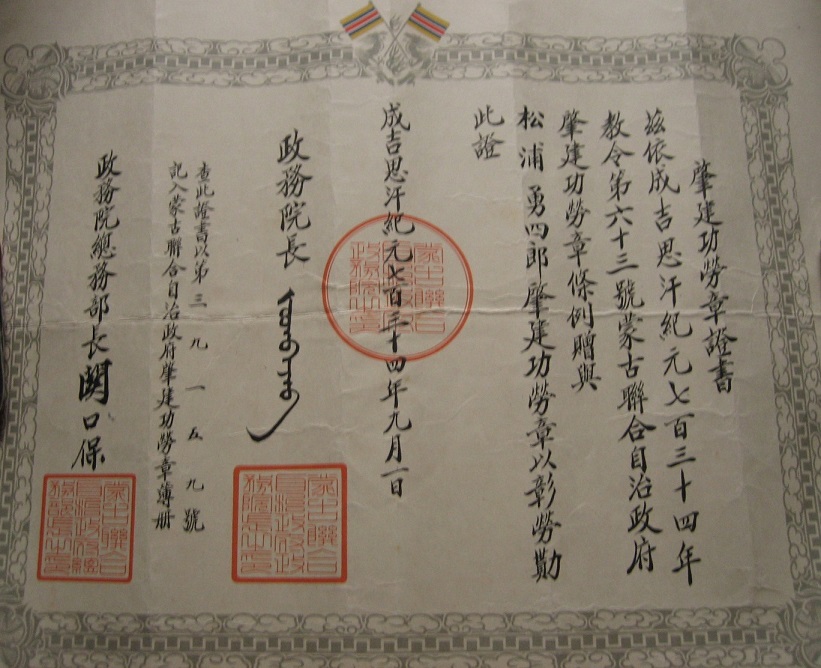 肇建功勞章證書
茲依成吉思汗紀元七百三十四年
教令第六十三號蒙古聯合自治政府
肇建功勞章條例贈與
松浦勇四郎肇建功勞章以彰勞勩
此證
成吉思汗紀元七百三十四年九月一日
政務院長
查此證書以第三九一五九號
記入蒙古聯合自治政府肇建功勞章簿冊
政務院總務部長關口保